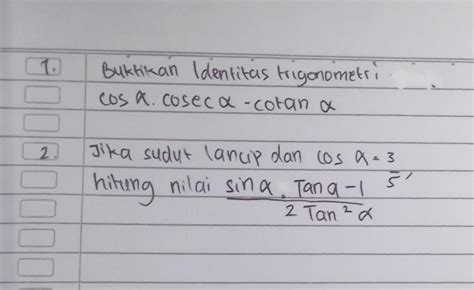 1. Buktikan Identitas trigonometri
cos α. cosec α - cotan α
2. Jika sudut lancip dan cos α = 3/5,
hitung nilai sin α . Tan α - 1 / 2 Tan² α